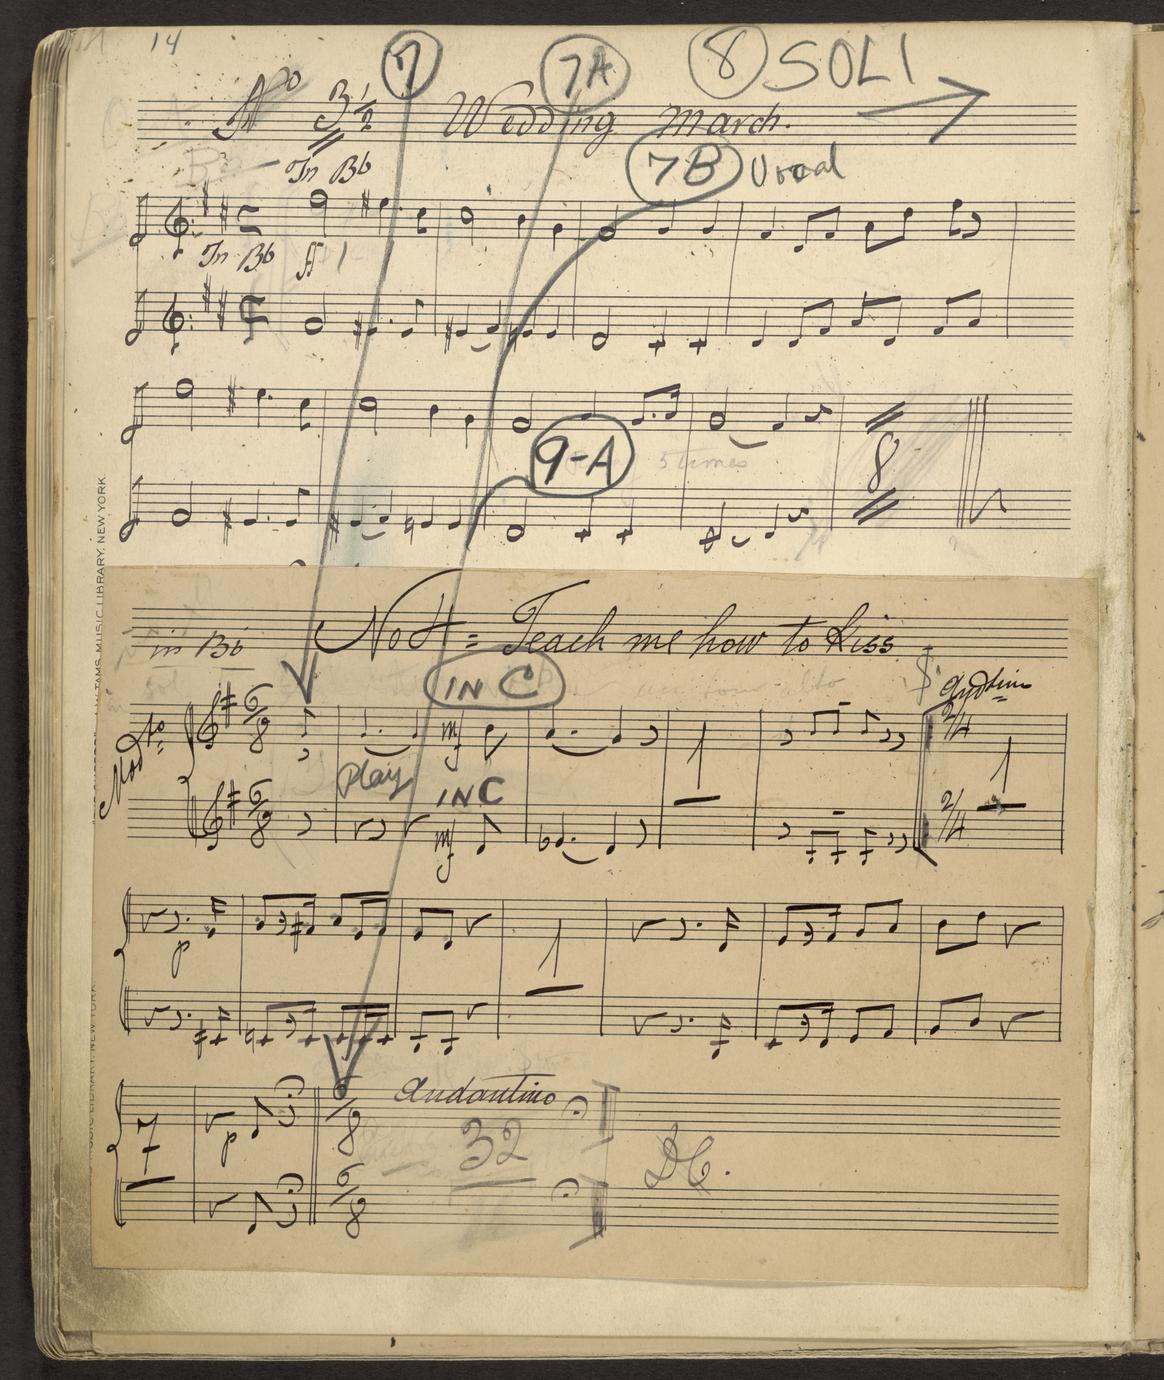 14 7 7A 8 SOLI
No 3½ Wedding March.
7B Vocal
In Bb
In Bb ff 1
9-A
5 times
8
in Bb No 4 = Teach me how to Kiss
IN C
Modto 6/8 mf 2/4
Play IN C
6/8 mf 1 1 2/4
p 1
6/8 Andantino
7 p 32 DC.
6/8
TAMS MUSIC LIBRARY, NEW YORK
MUSIC LIBRARY, NEW YORK